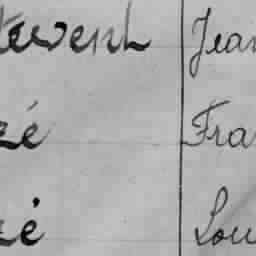 tevenh Jean
zé Fra
zé Lou